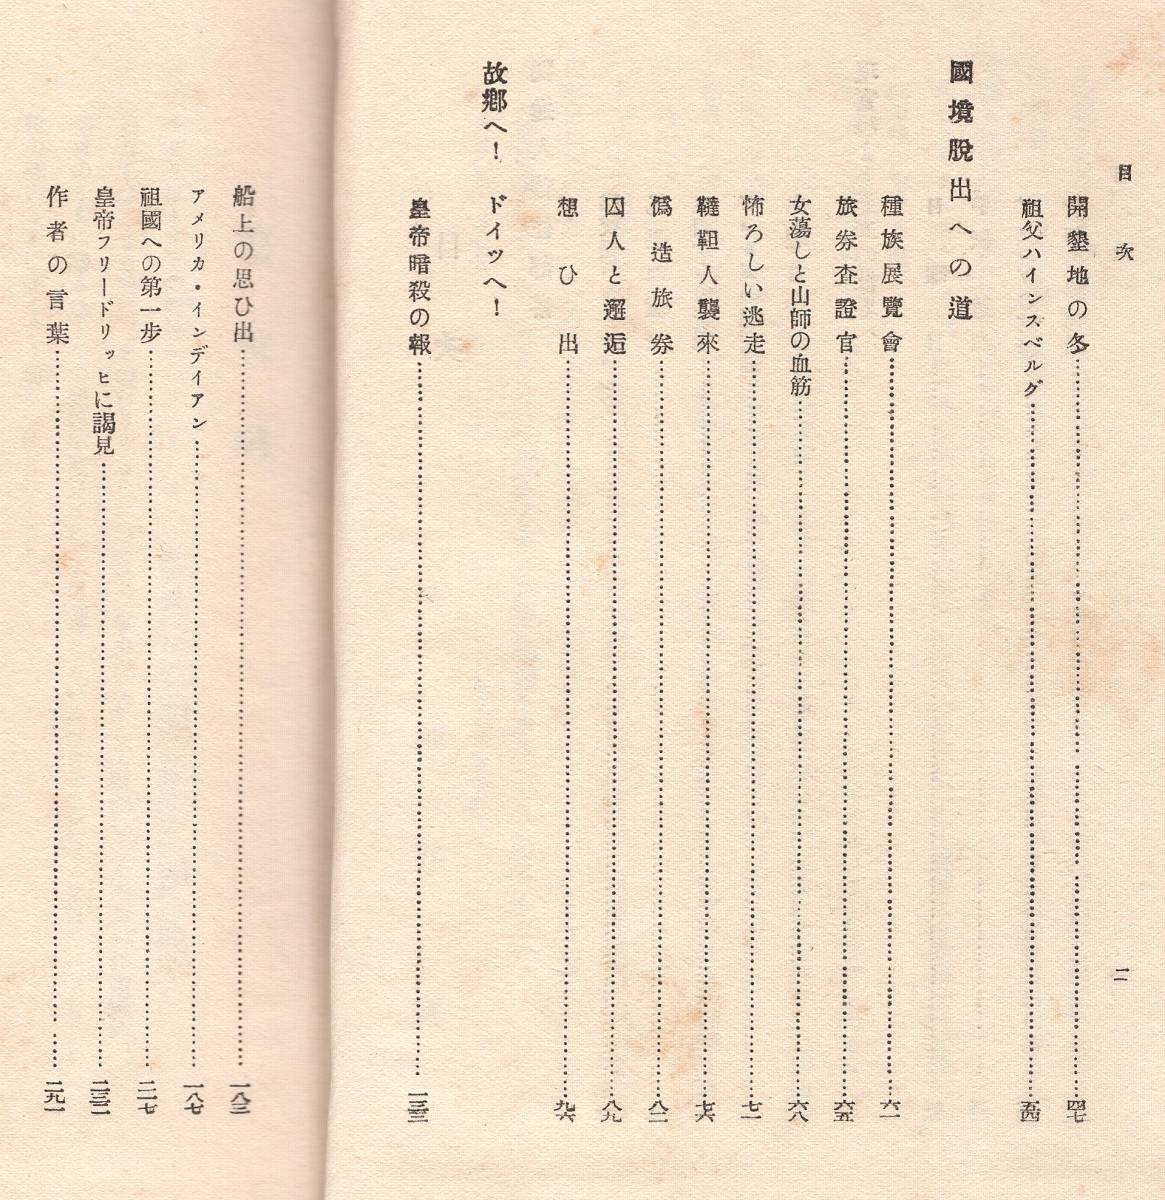 目次　二
開墾地の冬……四七
祖父ハインスベルグ……五四
國境脱出への道
種族展覽會……六一
旅券査證官……六五
女蕩しと山師の血筋……六八
怖ろしい逃走……七一
韃靼人襲來……七六
僞造旅券……八二
囚人と邂逅……八九
想ひ出……九六
故鄕へ！ドイツへ！
皇帝暗殺の報……一三三
船上の思ひ出……一八三
アメリカ・インデイアン……一八七
祖國への第一步……二一七
皇帝フリードリッヒに謁見……二三二
作者の言葉……二九一